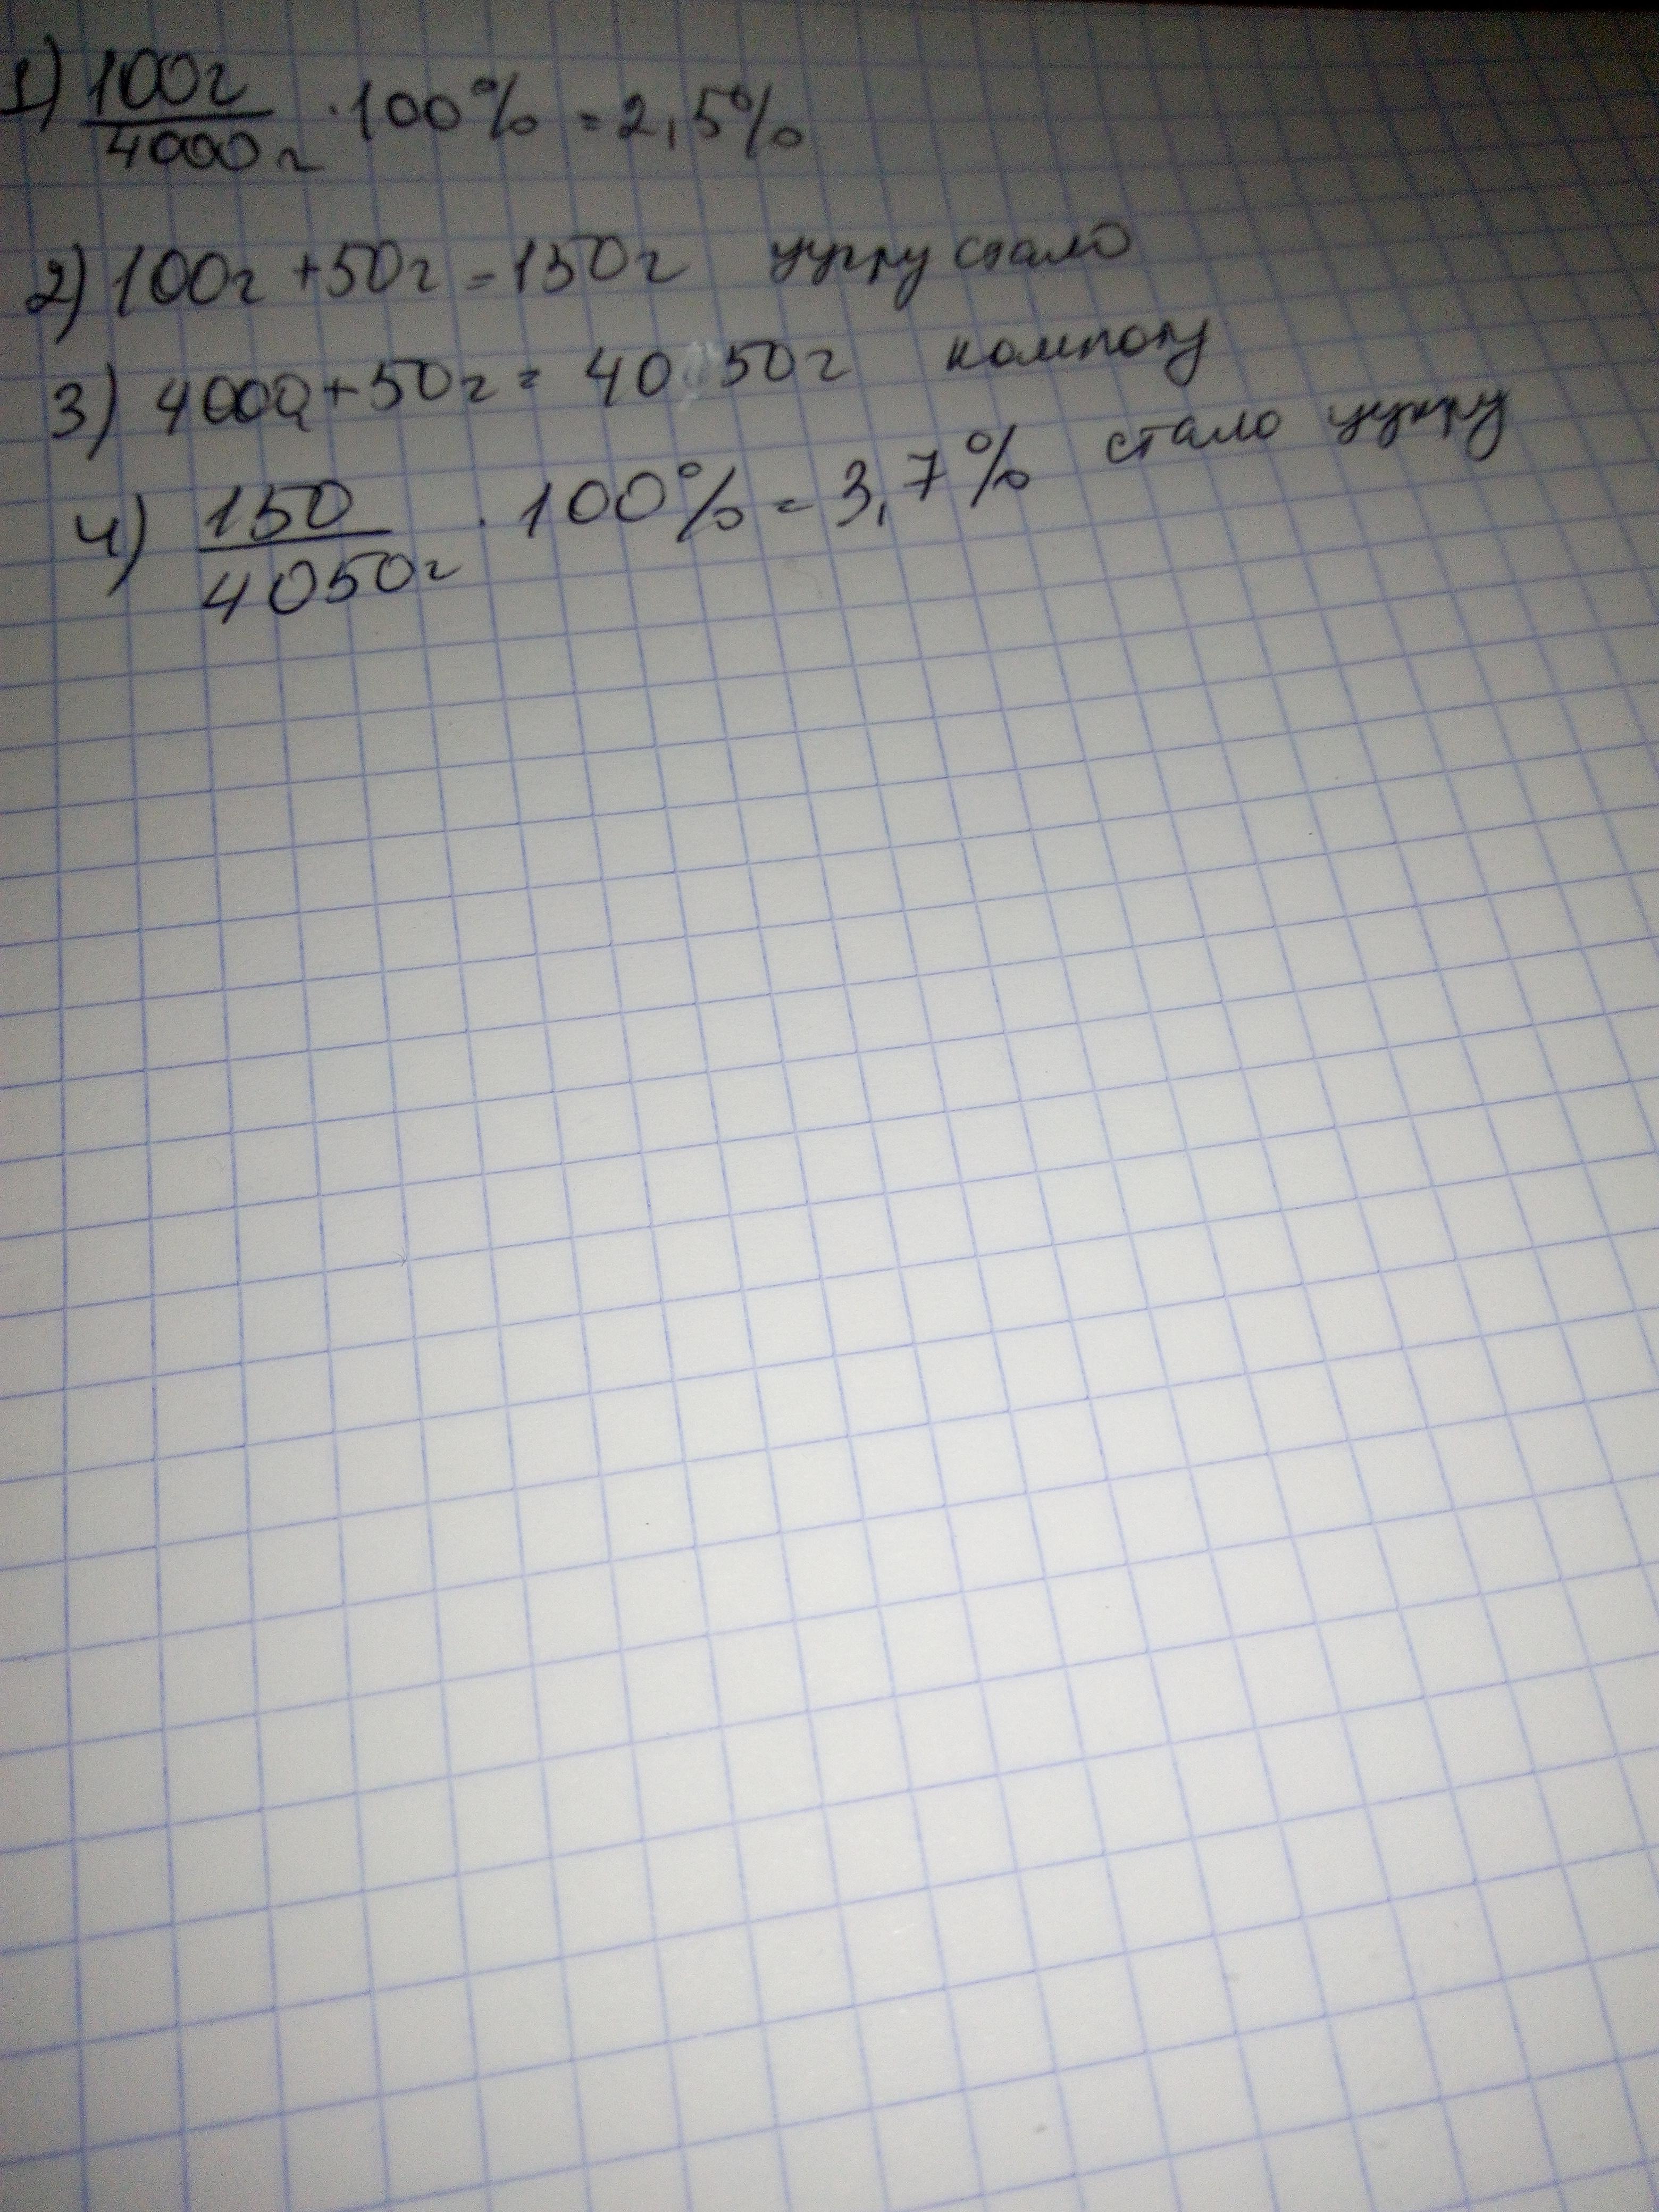 1) 100г/4000г · 100% = 2,5%
2) 100г + 50г = 150г цукру стало
3) 4000 + 50г = 4050г компоту
4) 150/4050г · 100% = 3,7% стало цукру